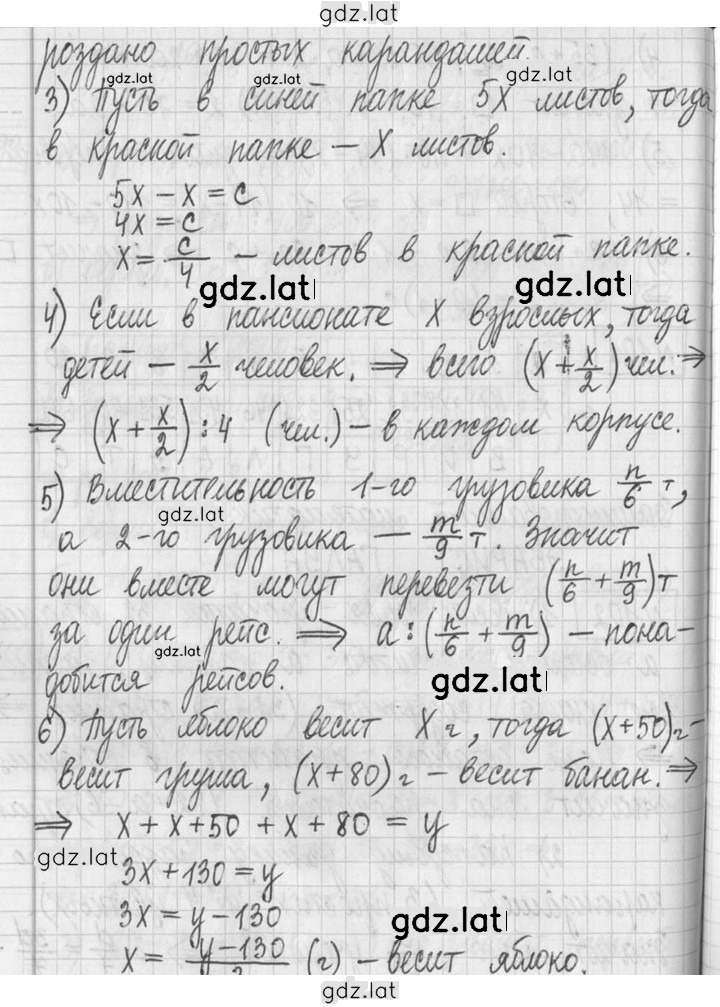 gdz.lat
роздано простых карандашей.
gdz.lat gdz.lat gdz.lat
3) Пусть в синей папке 5x листов, тогда
в красной папке — x листов.
5x − x = c
4x = c
x = c/4 — листов в красной папке.
gdz.lat gdz.lat
4) Если в пансионате x взрослых, тогда
детей — x/2 человек. ⇒ всего (x + x/2) чел. ⇒
⇒ (x + x/2) : 4 (чел.) — в каждом корпусе.
5) Вместительность 1-го грузовика n/6 т,
gdz.lat
а 2-го грузовика — m/9 т. Значит
они вместе могут перевезти (n/6 + m/9) т
за один рейс. ⇒ a : (n/6 + m/9) — пона-
gdz.lat
добится рейсов.
gdz.lat
6) Пусть яблоко весит x г, тогда (x+50) г -
весит груша, (x+80) г — весит банан. ⇒
⇒ x + x+50 + x + 80 = y
gdz.lat
3x + 130 = y
3x = y − 130
gdz.lat
x = y−130/3 (г) — весит яблоко.
gdz.lat